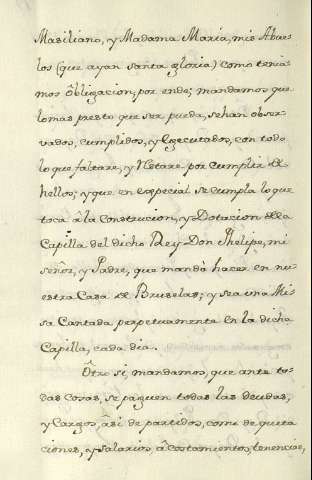 Masiliano, y Madama Maria, mis Abue
los (que ayan santa gloria) como tenia
mos ôbligacion, por ende; mandamos que
lo mas presto que ser pueda, se han obser
vados, cumplidos, y Executados, con todo
lo que faltare, y Restare por cumplir de
hellos; y que en especial se cumpla lo que
toca â la construcion, y Dotacion de la
Capilla del dicho Rey Don Phelipe, mi
señor, y Padre, que mandò hacer en nu
estra Casa de Bruselas; y sea una Mi
sa Cantada perpetuamente en la dicha
Capilla, cada dia.
Ôtro si, mandamos, que ante to
das cosas, se paguen todas las deudas,
y Cargos, âsi de partidos, como de quita
ciones, y salarios, âcostamientos, tenencias,